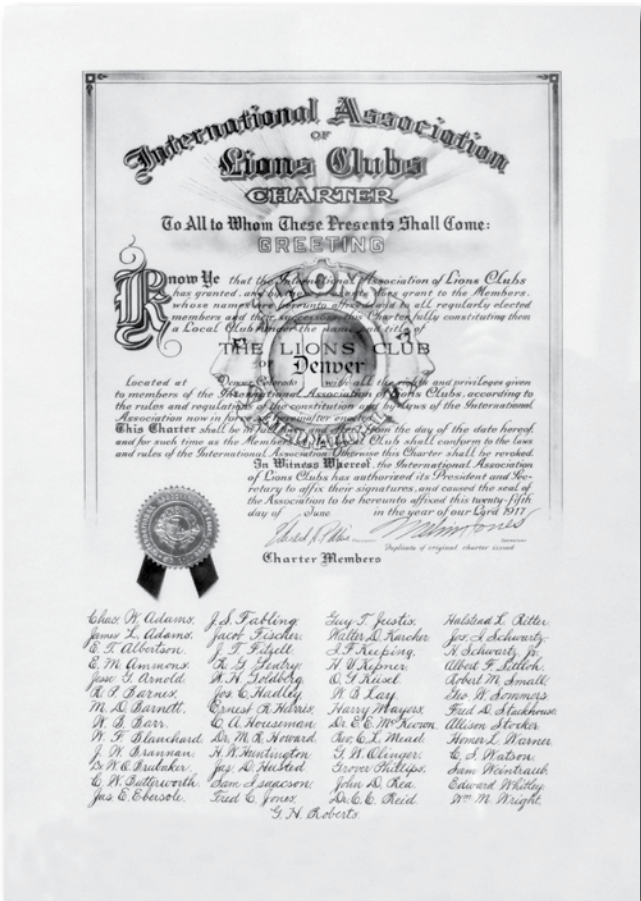 International Association
OF
Lions Clubs
CHARTER
To All to Whom These Presents Shall Come:
GREETING
Know Ye that the International Association of Lions Clubs
has granted, and by these presents does grant to the Members,
whose names are hereunto affixed and to all regularly elected
members and their successors, this Charter fully constituting them
a Local Club under the name and title of
THE LIONS CLUB
OF Denver
Located at Denver, Colorado with all the rights and privileges given
to members of the International Association of Lions Clubs, according to
the rules and regulations of the constitution and by-laws of the International
Association now in force or hereinafter enacted.
This Charter shall be in full force and effect from the day of the date hereof,
and for such time as the Members of said Local Club shall conform to the laws
and rules of the International Association. Otherwise this Charter shall be revoked.
In Witness Whereof, the International Association
of Lions Clubs has authorized its President and Sec-
retary to affix their signatures, and caused the seal of
the Association to be hereunto affixed this twenty-fifth
day of June in the year of our Lord 1917
Melvin Jones
Duplicate of original charter issued
Charter Members
LIONS
INTERNATIONAL
Chas. W. Adams.
James L. Adams.
E. T. Albertson.
E. M. Ammons.
Jesse G. Arnold.
R. P. Barnes.
M. D. Barnett.
W. B. Barr.
W. F. Blanchard.
J. W. Brannan.
Dr. W. E. Brubaker.
C. W. Butterworth.
Jas. E. Ebersole.
J. S. Fabling.
Jacob Fischer.
J. T. Fitzell
K. G. Gentry.
W. H. Goldberg.
Jos. C. Hadley.
Ernest R. Harris.
C. A. Houseman.
Dr. M. R. Howard.
H. W. Huntington.
Jas. D. Husted
Sam Isaacson.
Fred C. Jones.
Guy T. Justis.
Walter D. Karcher
J. F. Keeping.
H. V. Kepner.
O. G. Keisel.
W. B. Lay.
Harry Mayers.
Dr. E. E. McKeown.
Rev. C. L. Mead.
G. W. Olinger.
Grover Phillips.
John D. Rea.
Dr. C. E. Reid.
Halstead L. Ritter.
Jos. J. Schwartz.
H. Schwartz, Jr.
Albert F. Sittloh.
Robert M. Small.
Geo. W. Sommers.
Fred D. Stackhouse.
Allison Stocker.
Homer L. Warner.
C. S. Watson.
Sam Weintraub.
Edward Whitley
Wm. M. Wright.
G. H. Roberts.